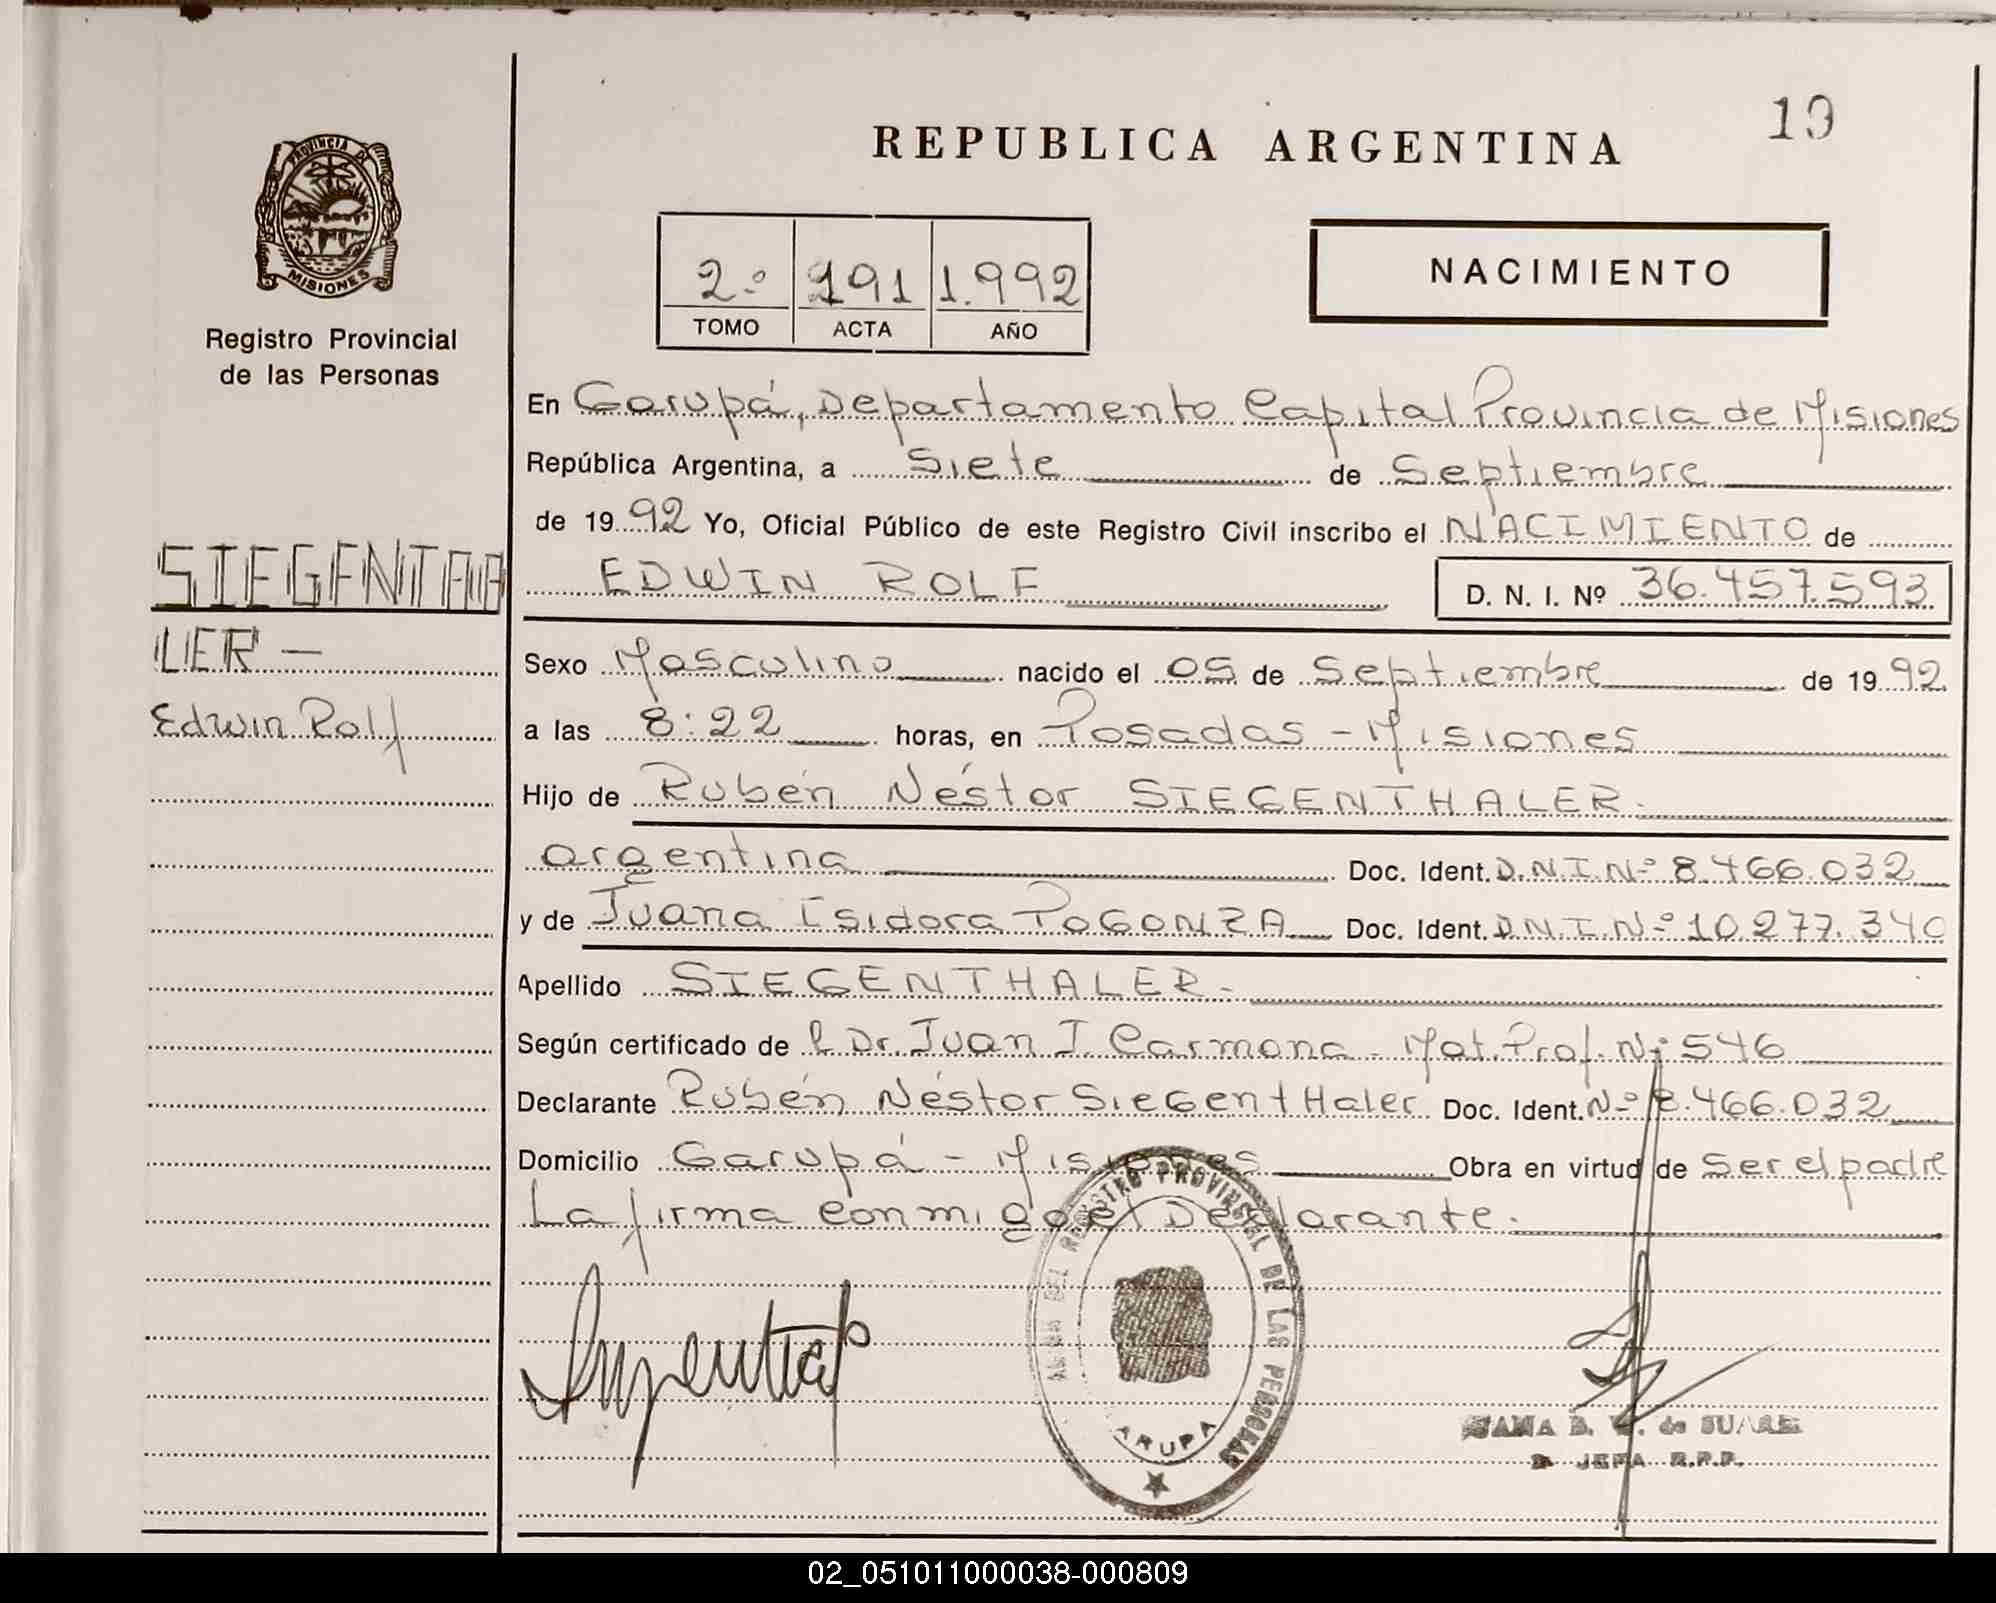 19
REPUBLICA ARGENTINA
PROVINCIA DE
MISIONES
Registro Provincial
de las Personas
2º 191 1.992
TOMO ACTA AÑO
NACIMIENTO
En Garupá, Departamento Capital Provincia de Misiones
República Argentina, a Siete de Septiembre
de 1992 Yo, Oficial Público de este Registro Civil inscribo el NACIMIENTO de
EDWIN ROLF D. N. I. Nº 36.457.593
SIEGENTHA
LER -
Edwin Rolf
Sexo Masculino nacido el 05 de Septiembre de 1992
a las 8:22 horas, en Posadas - Misiones
Hijo de Rubén Néstor SIEGENTHALER.
argentina Doc. Ident. D.N.I. Nº 8.466.032
y de Juana Isidora POGONZA Doc. Ident. D.N.I. Nº 10.277.340
Apellido SIEGENTHALER -
Según certificado de l Dr. Juan J. Carmona - Mat. Prof. Nº 546
Declarante Rubén Néstor SiegentHaler Doc. Ident. Nº 8.466.032
Domicilio Garupá - Misiones Obra en virtud de Ser el padre
La firma conmigo el Declarante.
DEL REGISTRO PROVINCIAL DE LAS PERSONAS
ARUPA
de SUAREZ
JEFA R.P.P.
02_051011000038-000809